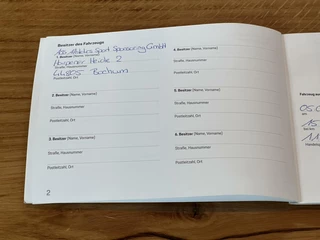 Besitzer des Fahrzeugs
Sport Sponsoring GmbH
1. Besitzer (Name, Vorname)
Heide 2
Straße, Hausnummer
Bochum
Postleitzahl, Ort
2. Besitzer (Name, Vorname)
Straße, Hausnummer
Postleitzahl, Ort
3. Besitzer (Name, Vorname)
Straße, Hausnummer
Postleitzahl, Ort
2
4. Besitzer (Name, Vorname)
Straße, Hausnummer
Postleitzahl, Ort
5. Besitzer (Name, Vorname)
Straße, Hausnummer
Postleitzahl, Ort
6. Besitzer (Name, Vorname)
Straße, Hausnummer
Postleitzahl, Ort